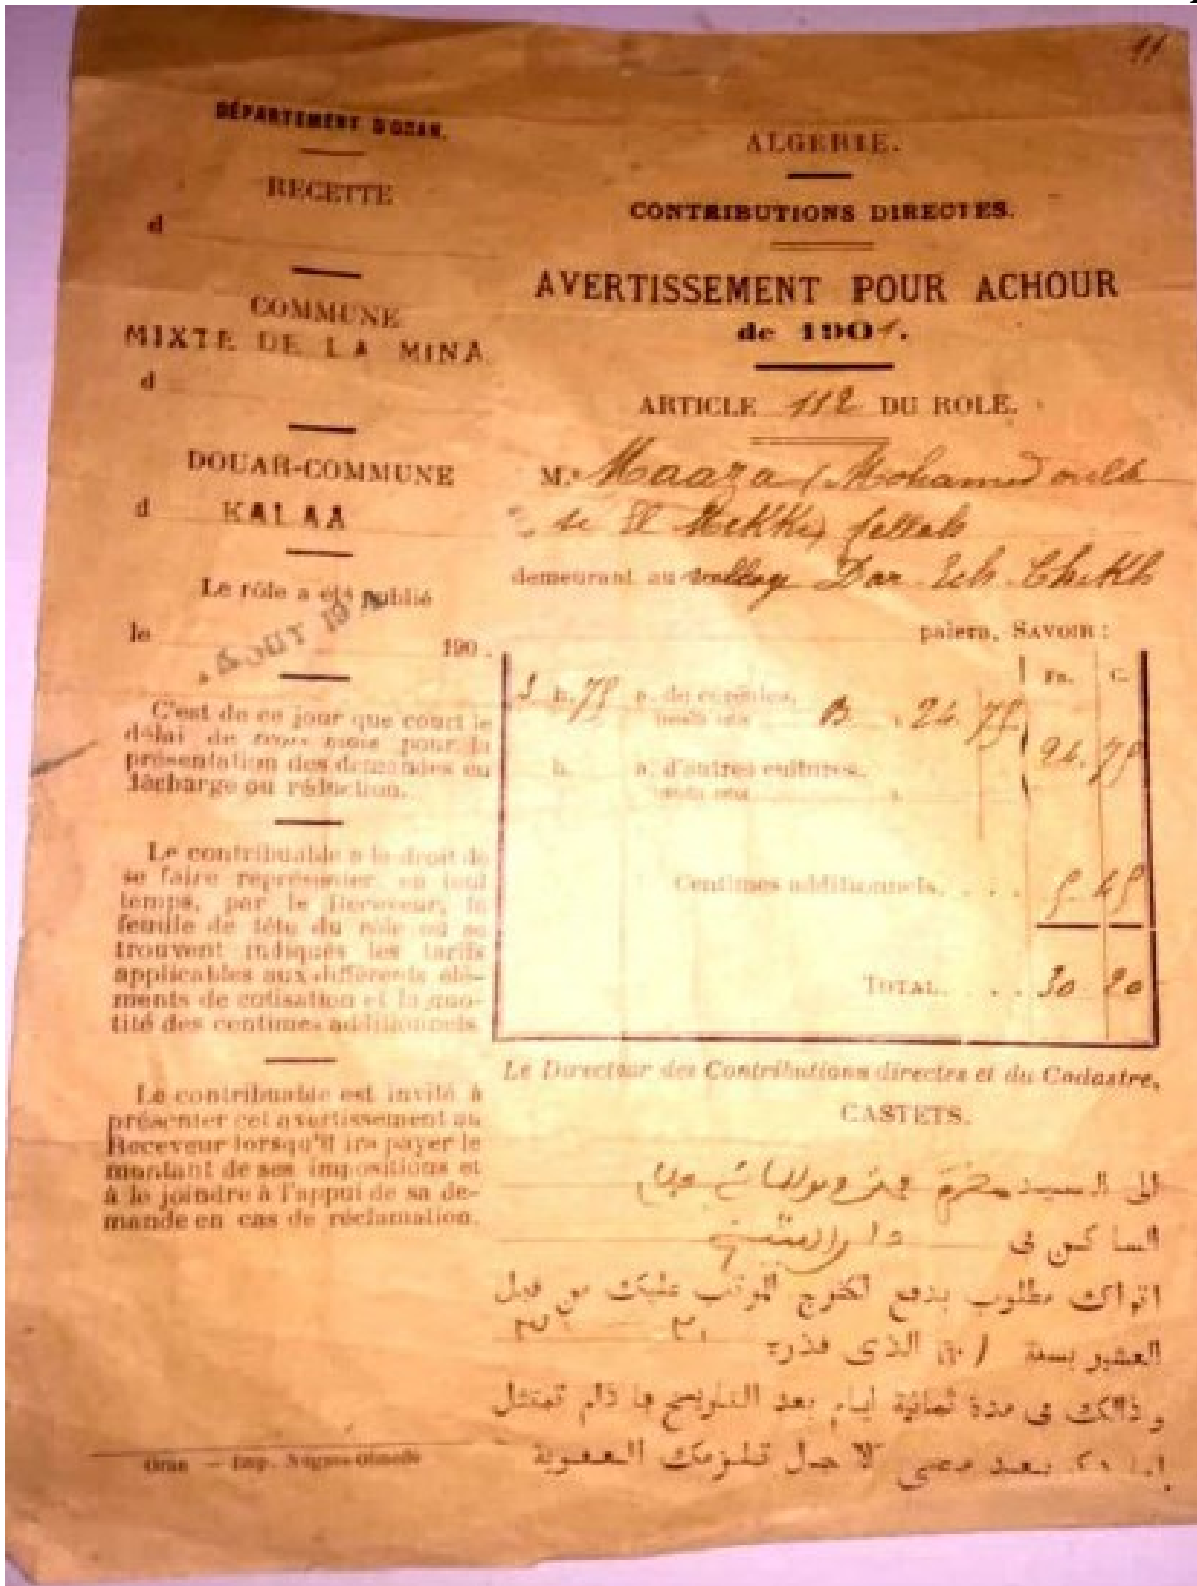 11
DÉPARTEMENT D'ORAN.
RECETTE
d
COMMUNE
MIXTE DE LA MINA.
d
DOUAR-COMMUNE
d KALAA
Le rôle a été publié
le AOUT 190 .
C'est de ce jour que court le
délai de trois mois pour la
présentation des demandes en
décharge ou réduction.
Le contribuable a le droit de
se faire représenter, en tout
temps, par le Receveur, la
feuille de tête du rôle où se
trouvent indiqués les tarifs
applicables aux différents élé-
ments de cotisation et la quo-
tité des centimes additionnels.
Le contribuable est invité à
présenter cet avertissement au
Receveur lorsqu'il ira payer le
montant de ses impositions et
à le joindre à l'appui de sa de-
mande en cas de réclamation.
Oran — Imp.
ALGÉRIE.
CONTRIBUTIONS DIRECTES.
AVERTISSEMENT POUR ACHOUR
de 1901.
ARTICLE 112 DU ROLE.
M. Maaza (Mohamed ould
si El Mekki) fellah
demeurant au Dar Ech Chikh
paiera, SAVOIR :
Fr. C.
h. 75 a. de céréales,
B 24 75
24. 75
h. a. d'autres cultures,
Centimes additionnels. . . . 5 45
TOTAL. . . . 30 20
Le Directeur des Contributions directes et du Cadastre,
CASTETS.
الى السيد
الساكن في دار الشيخ
انك مطلوب بدفع الخروج المرتب عليك من قبل
العشور بسنة الذي قدره ٣٠
و ذالك في مدة ثمانية ايام بعد التاريخ
بعد لاجل تلزمك العقوبة